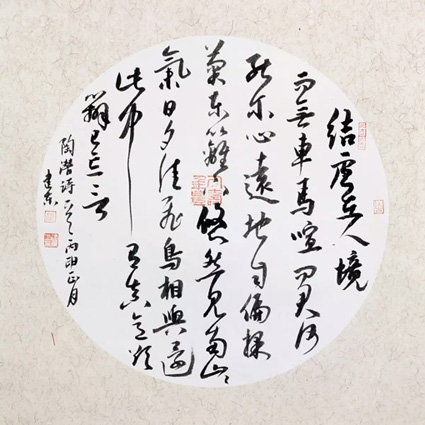 結廬在人境
而無車馬喧問君何
能尔心遠地自偏採
菊東籬下悠然見南山〻
氣日夕佳飛鳥相與還
此中有真意欲
辯已忘言
陶潛詩一首丙申正月
建东